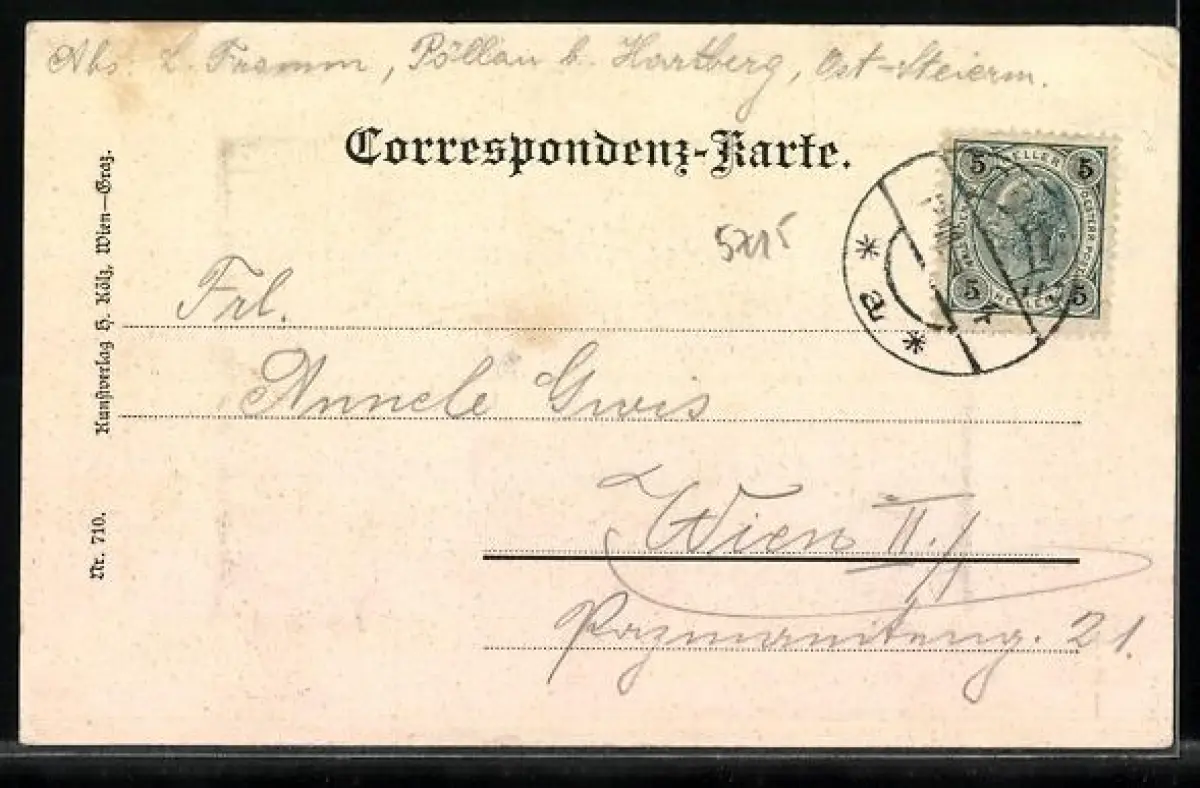 Abs. L. Framm, Pöllau b. Hartberg, Ost-Steierm.
Correspondenz-Karte.
5 HELLER 5
5 HELLER 5
Frl.
Annele
Wien II./
Pazmaniteng. 21.
Kunstverlag H. Kölz, Wien—Graz.
Nr. 710.